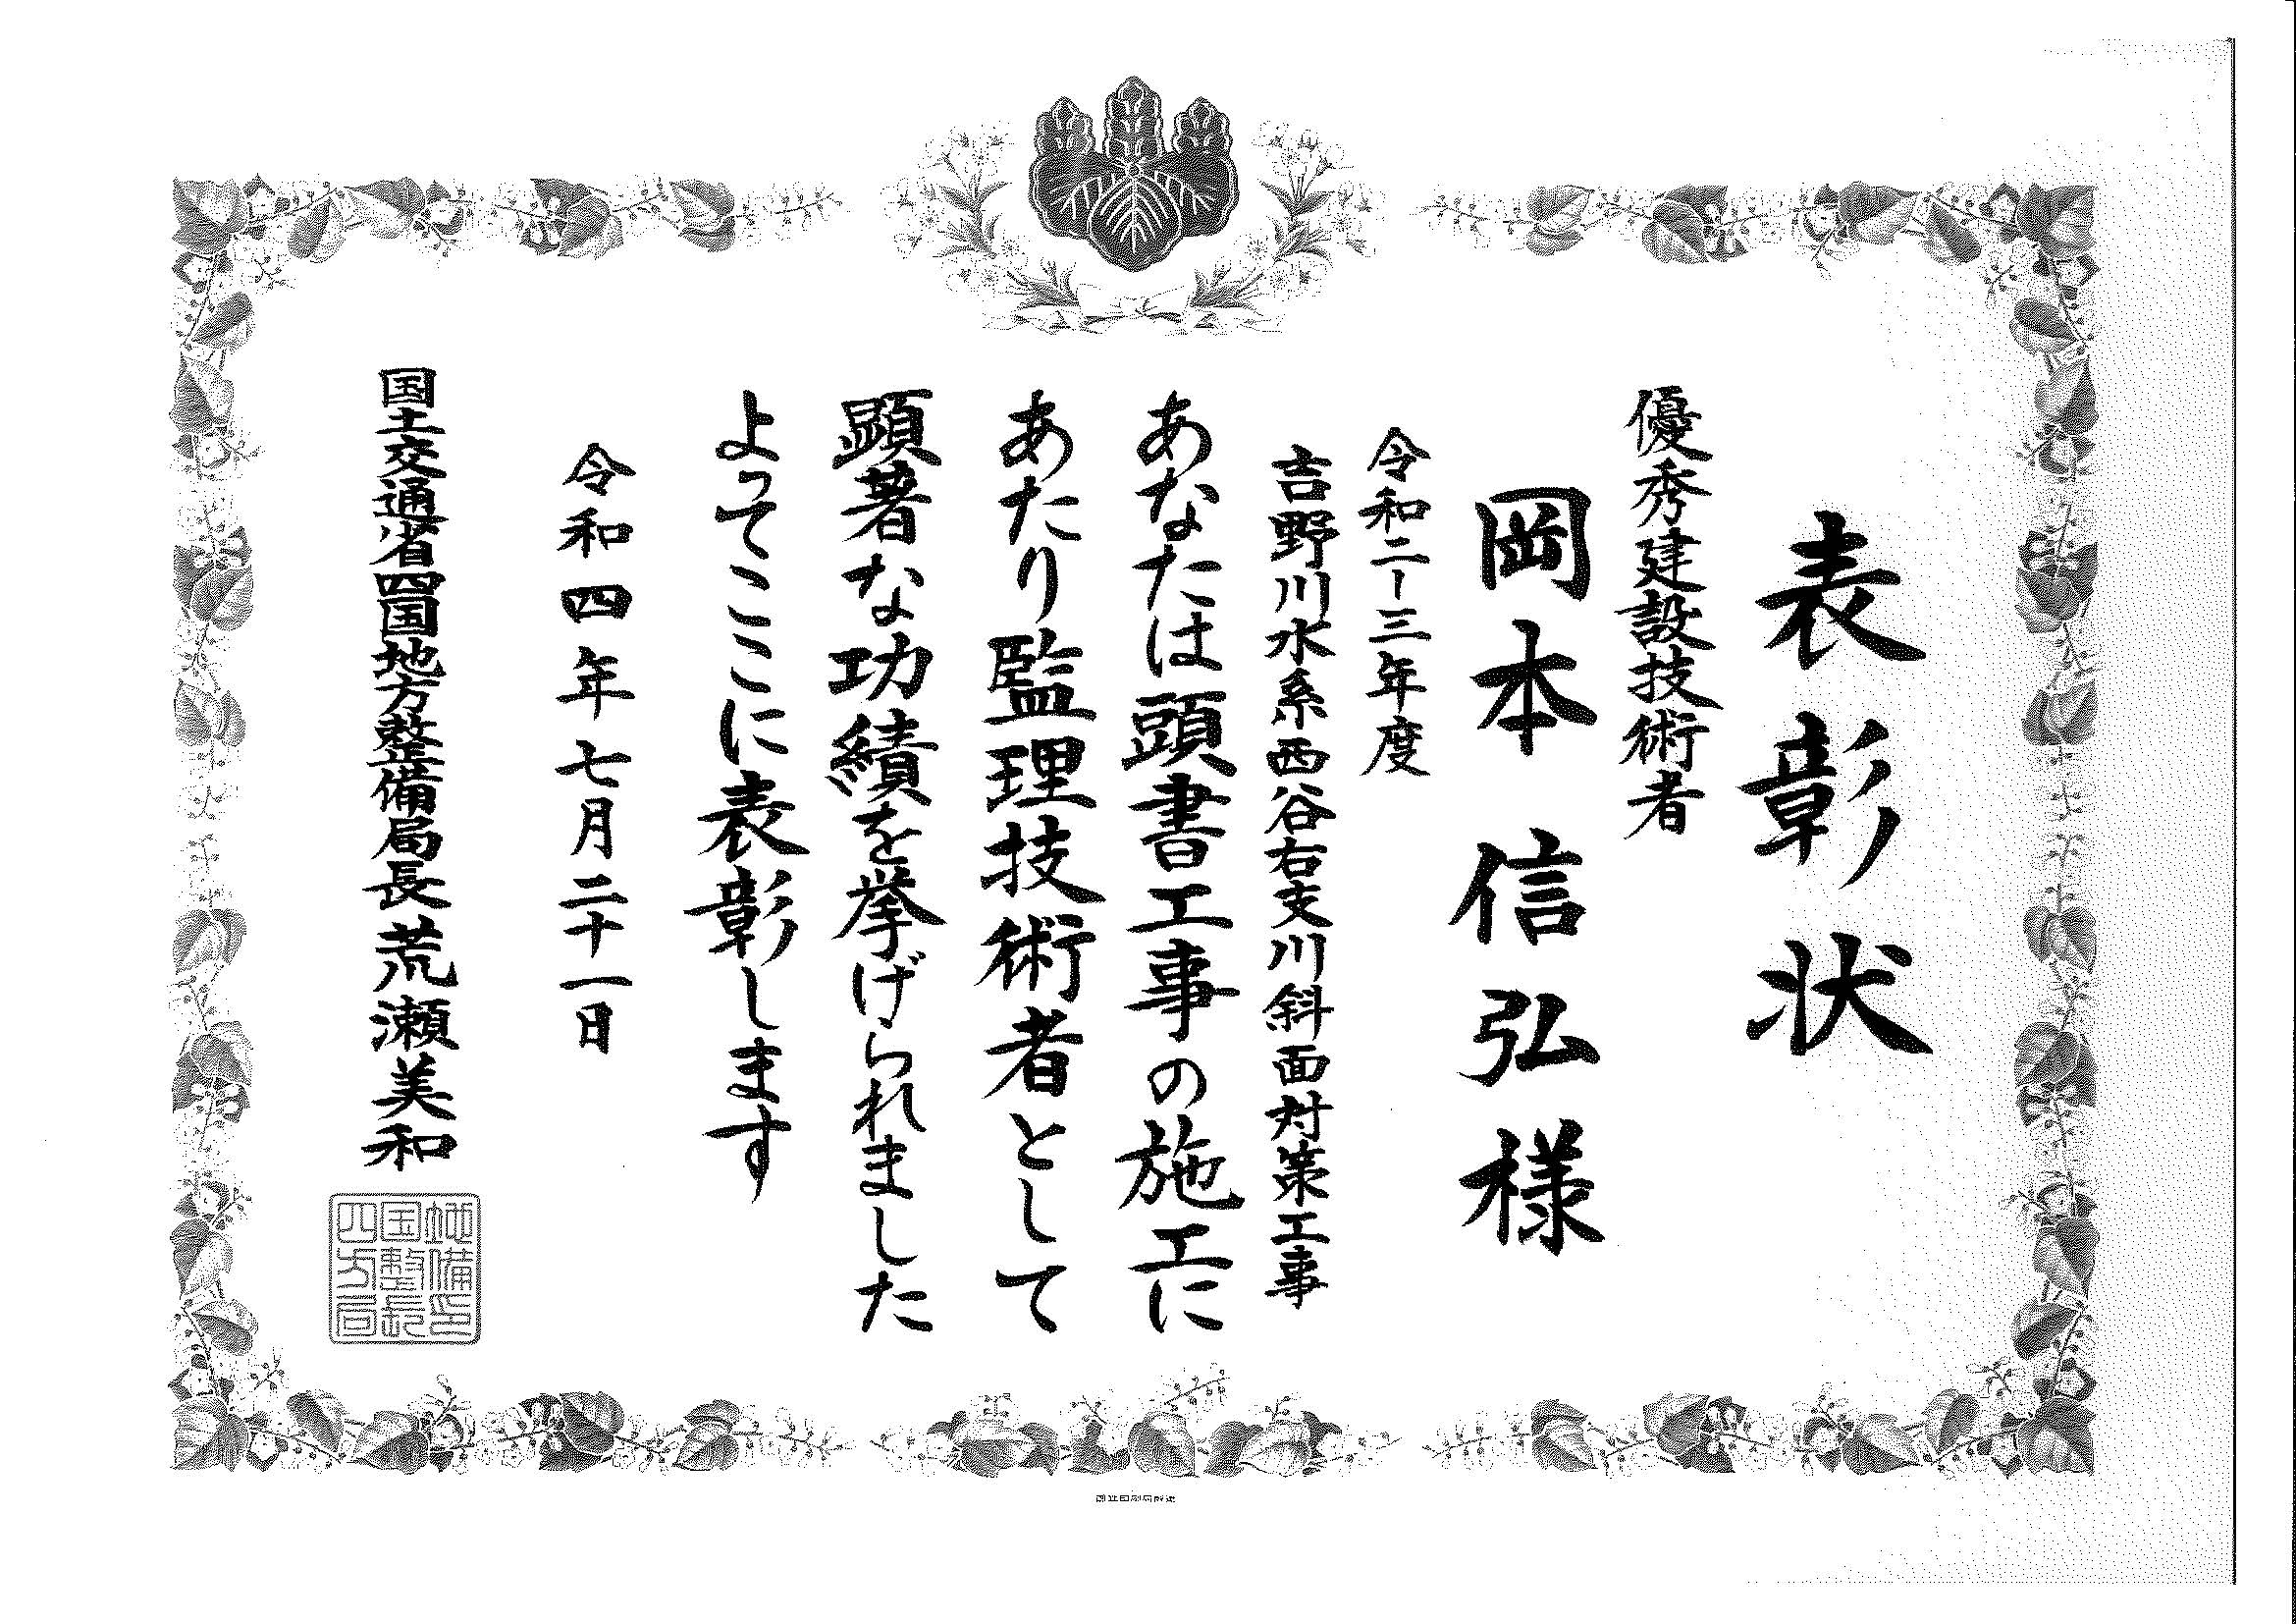 表彰状
優秀建設技術者
岡本信弘様
令和二ー三年度
吉野川水系西谷右支川斜面対策工事
あなたは頭書工事の施工に
あたり監理技術者として
顕著な功績を挙げられました
よってここに表彰します
令和四年七月二十一日
国土交通省四国地方整備局長荒瀬美和
四国地方整備局長印
国立印刷局製造